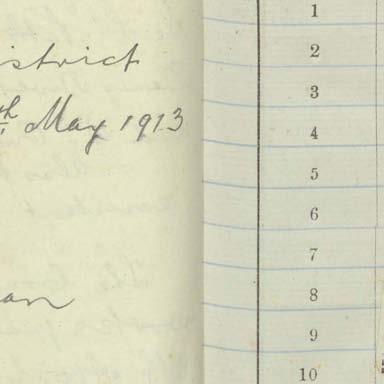 istrict
th May 1913
an
1
2
3
4
5
6
7
8
9
10